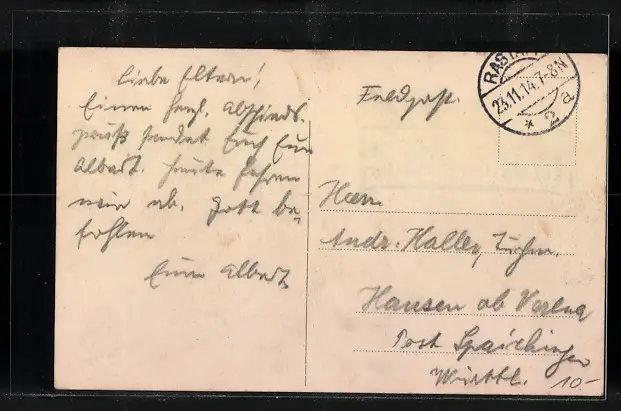 Liebe Eltern!
Einen herzl. Abschieds-
gruß sendet Euch Euer
Albert. Heute fahren
wir ab. Gott be-
fohlen
Euer Albert.
Feldpost.
RASTATT
23.11.14. 7-8N
* 2 a
Herrn
Andr. Haller,
Hausen ob Verena
Post Spaichingen
Württbg.
10.-